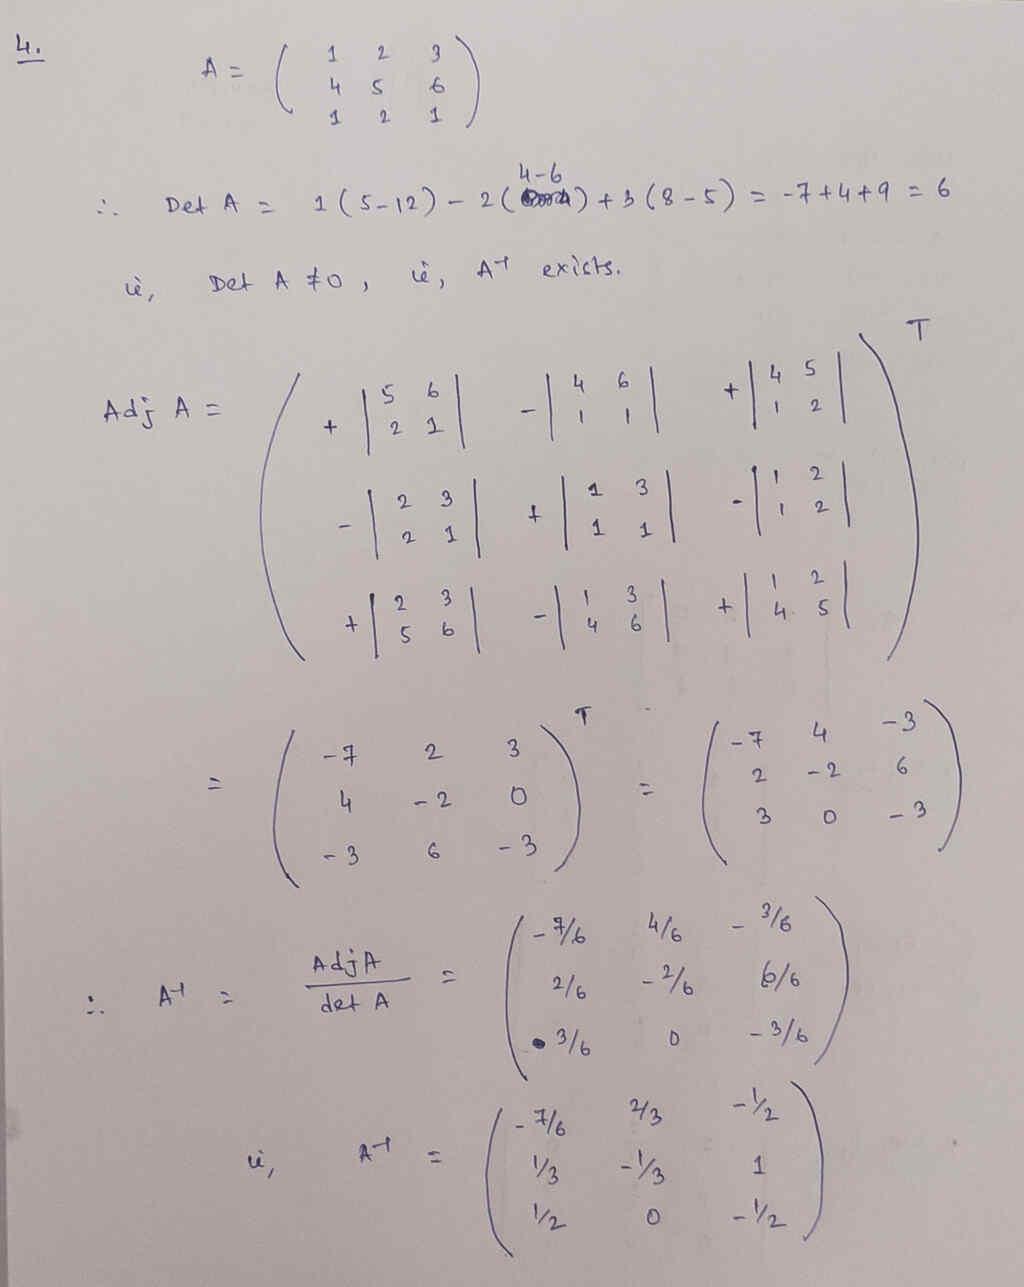 4.
A = ( 1 2 3
4 5 6
1 2 1 )
∴ Det A = 1 (5-12) - 2 (4-6) + 3 (8-5) = -7+4+9 = 6
ie, Det A ≠ 0, ie, A⁻¹ exists.
Adj A = ( + | 5 6 | - | 4 6 | + | 4 5 | ) T
| 2 1 | | 1 1 | | 1 2 |
- | 2 3 | + | 1 3 | - | 1 2 |
| 2 1 | | 1 1 | | 1 2 |
+ | 2 3 | - | 1 3 | + | 1 2 |
| 5 6 | | 4 6 | | 4 5 |
= ( -7 2 3 ) T = ( -7 4 -3 )
4 -2 0 2 -2 6
-3 6 -3 3 0 -3
∴ A⁻¹ = Adj A / det A = ( -7/6 4/6 -3/6
2/6 -2/6 6/6
3/6 0 -3/6 )
ie, A⁻¹ = ( -7/6 2/3 -1/2
1/3 -1/3 1
1/2 0 -1/2 )